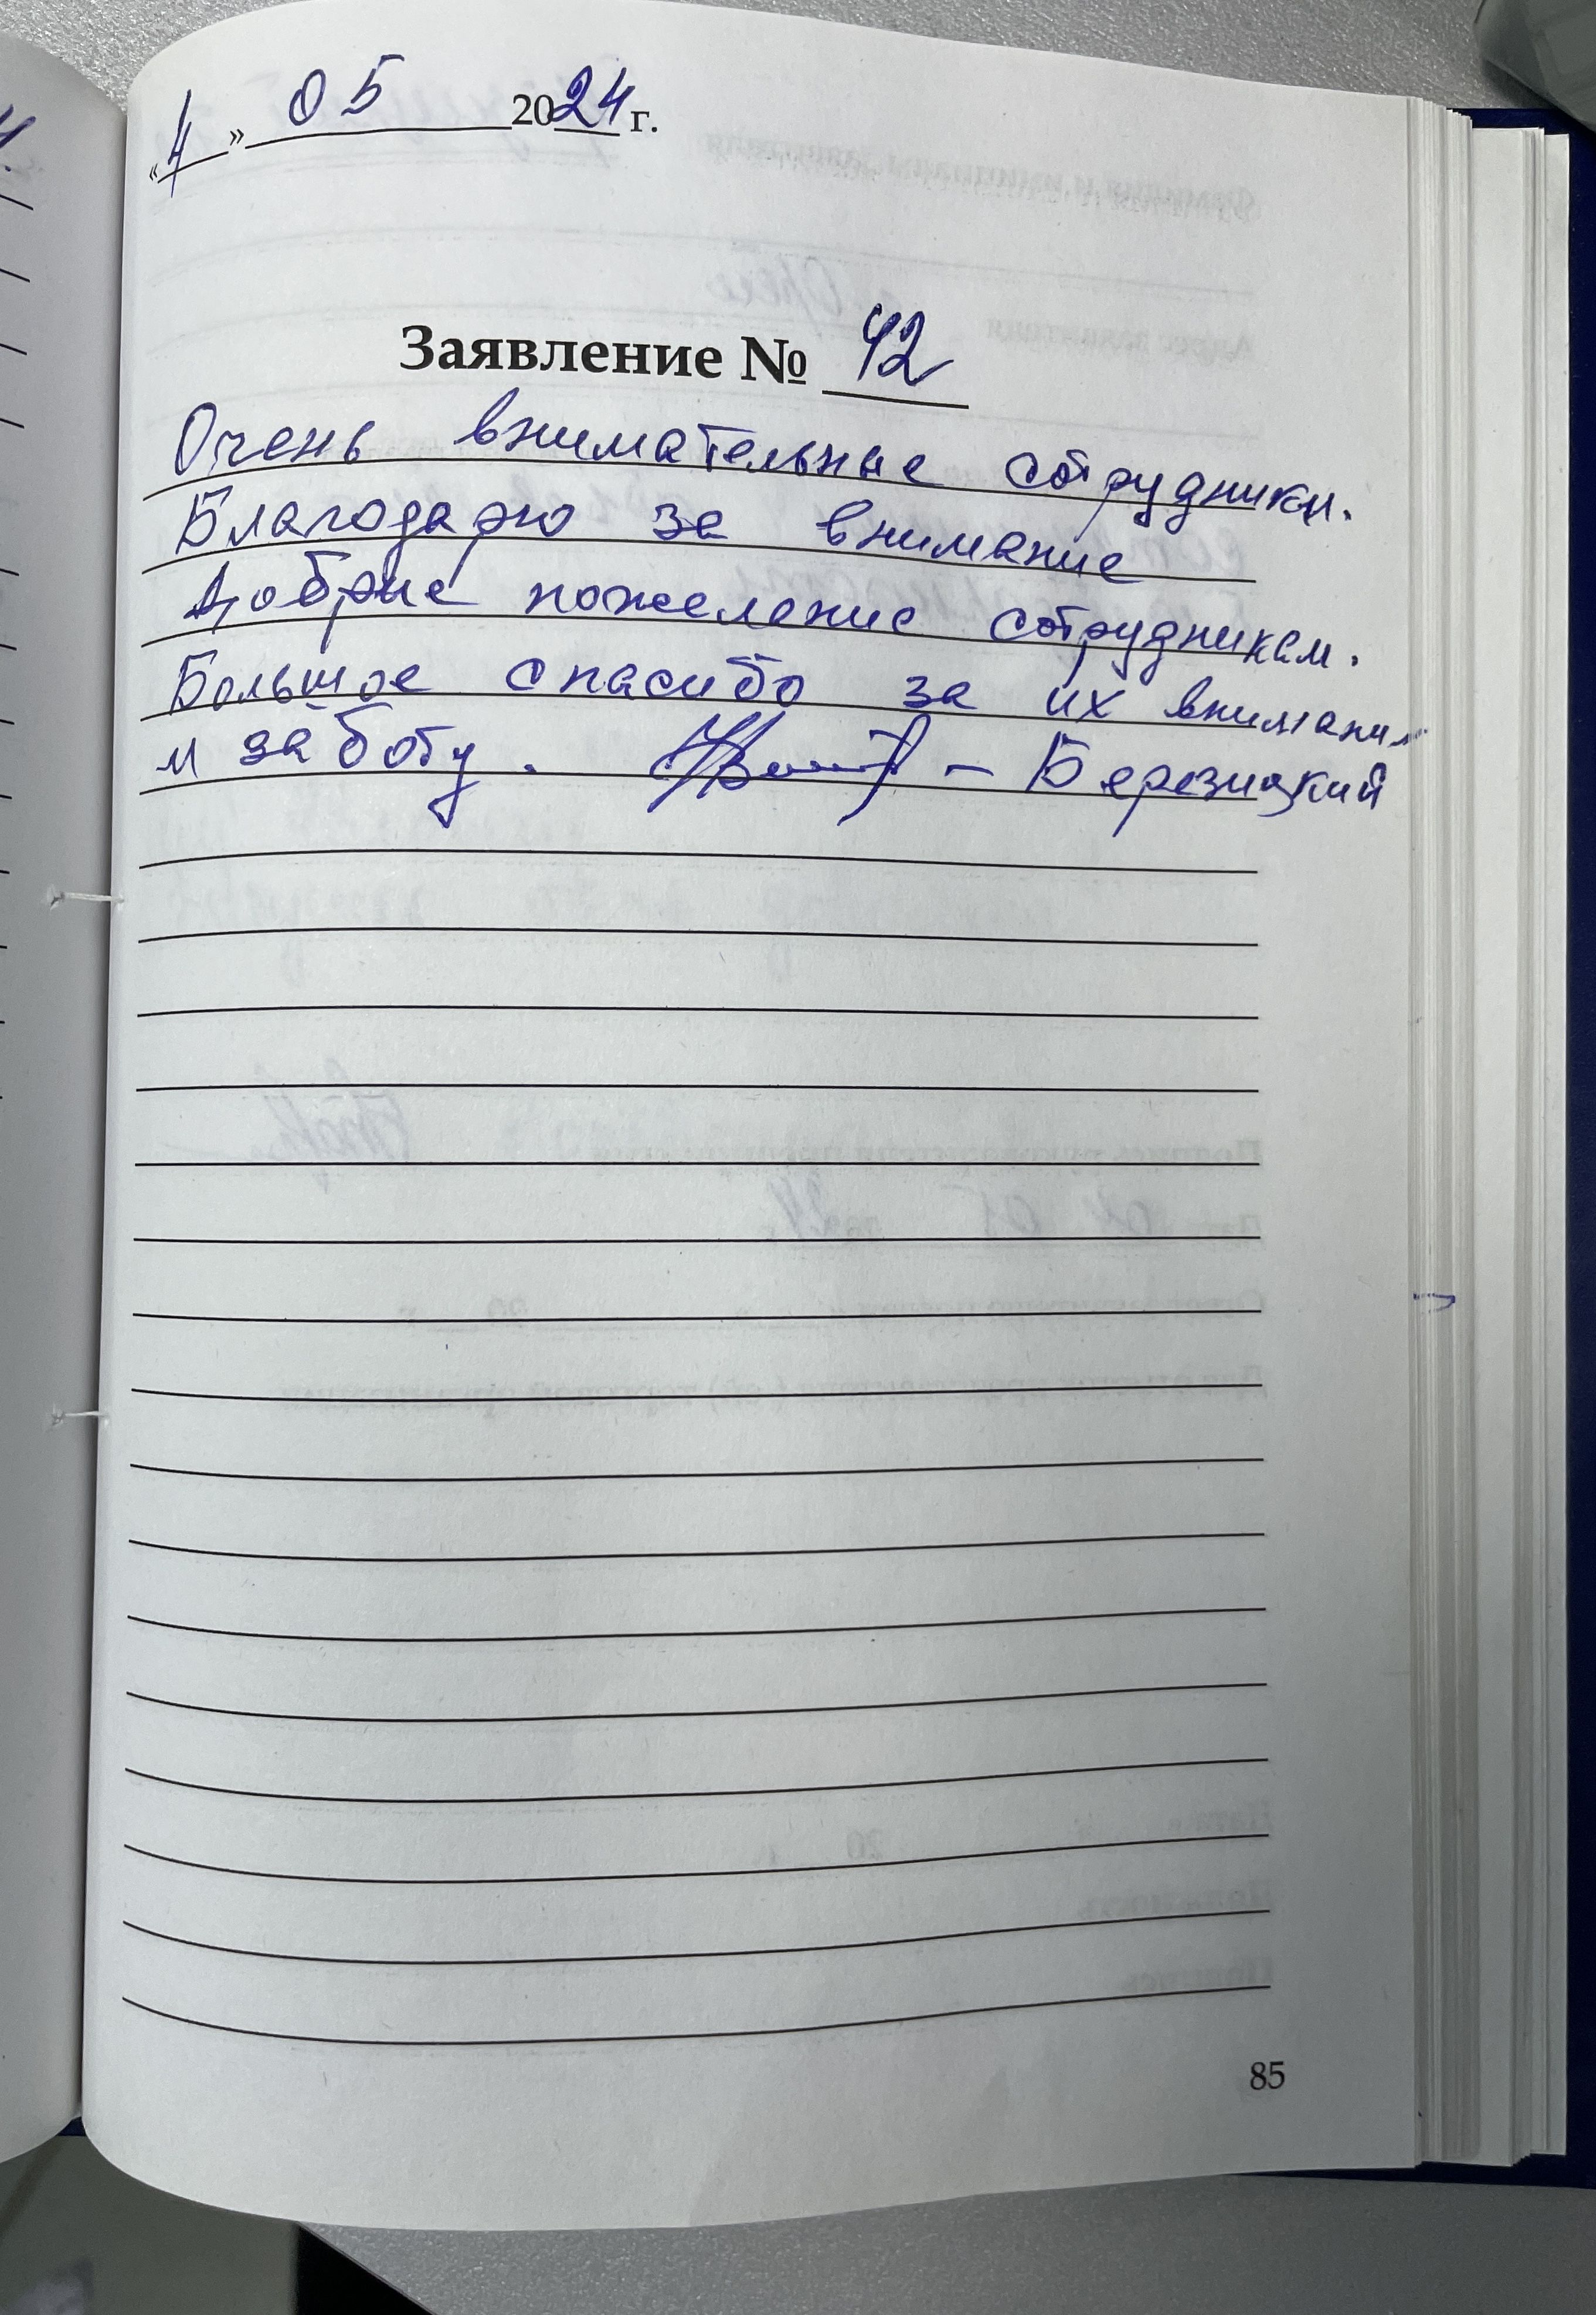 «4» 05 2024 г.
Заявление № 42
Очень внимательные сотрудники.
Благодарю за внимание
Добрые пожелание сотрудникам.
Большое спасибо за их внимания
и заботу. – Березицкий
85